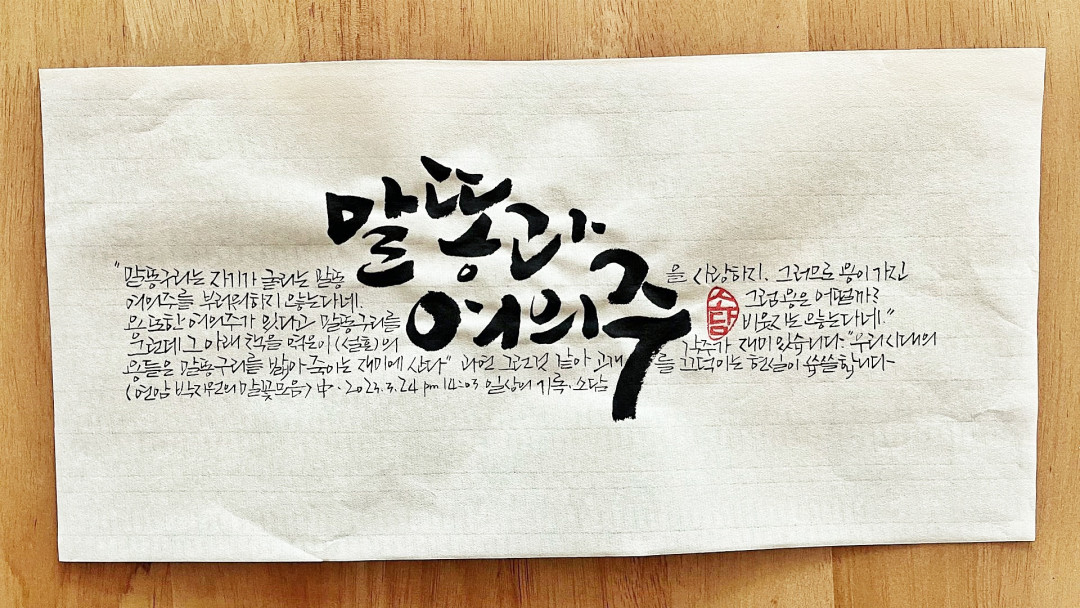 말똥과
여의주
"말똥구리는 자기가 굴리는 말똥을 사랑하지. 그러므로 용이 가진
여의주를 부러워하지 않는다네. 그럼 용은 어떨까?
용 또한 여의주가 있다고 말똥구리를 비웃지는 않는다네."
우런데 그 아래 책을 엮은이(설흔)의 각주가 재미있습니다. "우리시대의
용들은 말똥구리를 밟아 죽이는 재미에 산다" 과연 그런것 같아 고개를 끄덕이는 현실이 씁쓸합니다
(연암 박지원의 말꽃모음) 中 · 2023.3.24 pm 14:03 일상의 기록. 소담
소담